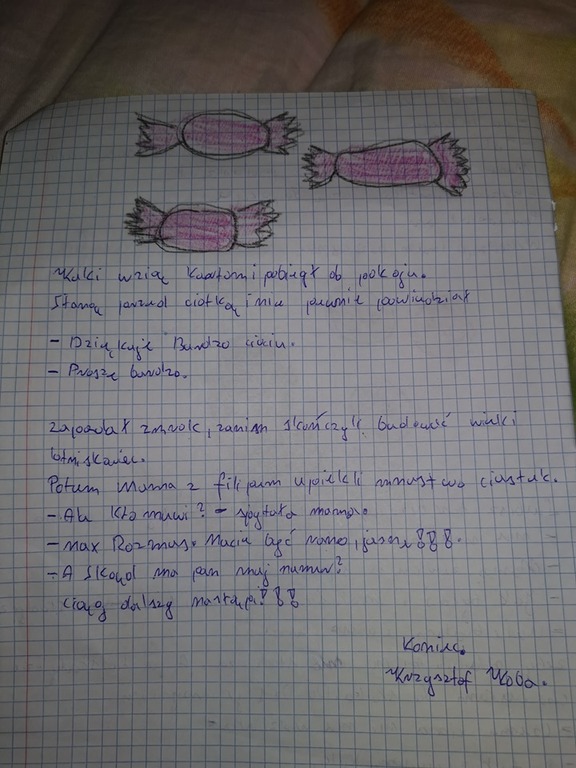 Kuki wzią karton i pobiegł do pokoju.
Staną przed ciotką i nie pewnie powiedział
- Dziąkuje Bardzo ciociu.
- Prosze bardzo.
zapadał zmrok, zanim skończyli budować wielki
lotniskowiec.
Potem Mama z filipem upiekli mnustwo ciastek.
- Ale kto muwi? - spytała mama.
- max Rozmus. Macie być rano, jasne!!!.
- A Skąd ma pan muj numer?
ciąg dalszy nastąpi!!!
Koniec.
Krzysztof Koba.